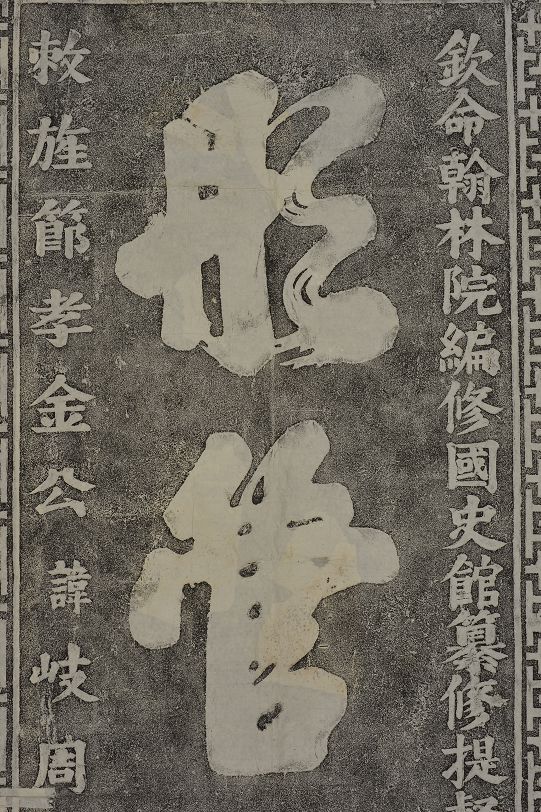 欽命翰林院編修國史館纂修提
彤管
敕旌節孝金公諱岐周